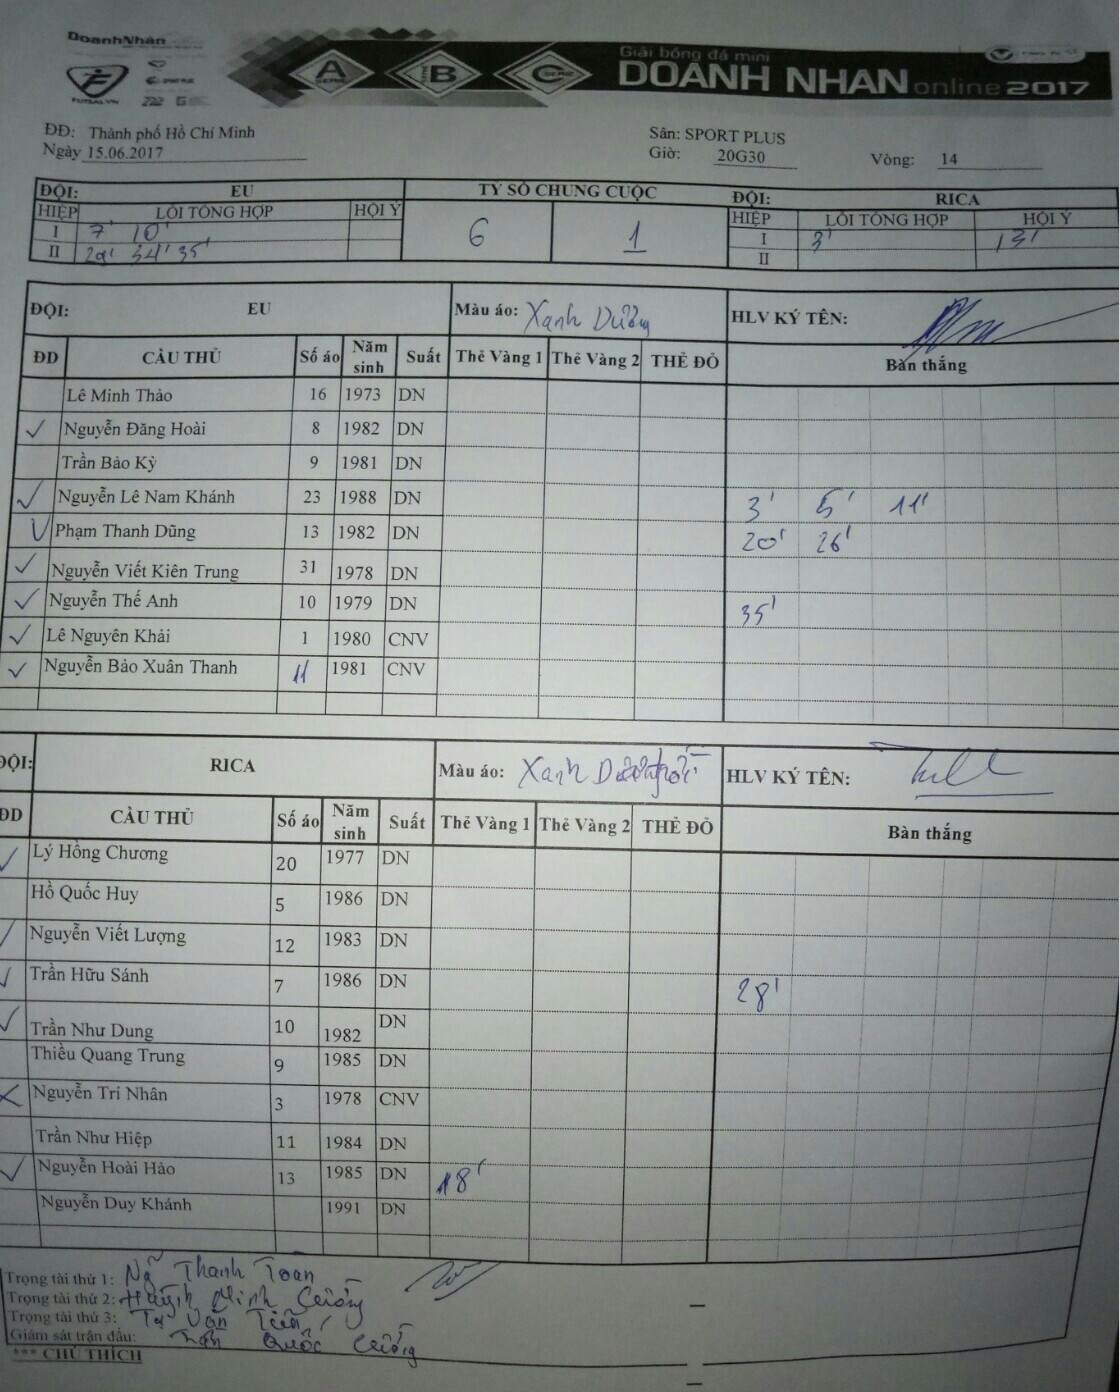 DoanhNhân
FUTSAL.VN
SPORT PLUS
A SERIE
B SERIE
C SERIE
Giải bóng đá mini
DOANH NHAN online 2017
ĐĐ: Thành phố Hồ Chí Minh
Sân: SPORT PLUS
Ngày 15.06.2017
Giờ: 20G30 Vòng: 14
ĐỘI: EU TỶ SỐ CHUNG CUỘC ĐỘI: RICA
HIỆP LỖI TỔNG HỢP HỘI Ý 6 1 HIỆP LỖI TỔNG HỢP HỘI Ý
I 7' 10' I 3' 13'
II 29' 34' 35' II
ĐỘI: EU Màu áo: Xanh Dương HLV KÝ TÊN:
ĐD CẦU THỦ Số áo Năm sinh Suất Thẻ Vàng 1 Thẻ Vàng 2 THẺ ĐỎ Bàn thắng
Lê Minh Thảo 16 1973 DN
Nguyễn Đăng Hoài 8 1982 DN
Trần Bảo Kỳ 9 1981 DN
Nguyễn Lê Nam Khánh 23 1988 DN 3' 5' 11'
Phạm Thanh Dũng 13 1982 DN 20' 26'
Nguyễn Viết Kiên Trung 31 1978 DN
Nguyễn Thế Anh 10 1979 DN 35'
Lê Nguyên Khải 1 1980 CNV
Nguyễn Bảo Xuân Thanh 11 1981 CNV
ĐỘI: RICA Màu áo: Xanh Dương trời HLV KÝ TÊN:
ĐD CẦU THỦ Số áo Năm sinh Suất Thẻ Vàng 1 Thẻ Vàng 2 THẺ ĐỎ Bàn thắng
Lý Hồng Chương 20 1977 DN
Hồ Quốc Huy 5 1986 DN
Nguyễn Viết Lượng 12 1983 DN
Trần Hữu Sánh 7 1986 DN 28'
Trần Như Dung 10 1982 DN
Thiều Quang Trung 9 1985 DN
Nguyễn Trí Nhân 3 1978 CNV
Trần Như Hiệp 11 1984 DN
Nguyễn Hoài Hảo 13 1985 DN 18'
Nguyễn Duy Khánh 1991 DN
Trọng tài thứ 1: Ng Thanh Toan
Trọng tài thứ 2: Huỳnh Minh Cường
Trọng tài thứ 3: Tạ Văn Tiến
Giám sát trận đấu: Trần Quốc Cường
*** CHÚ THÍCH